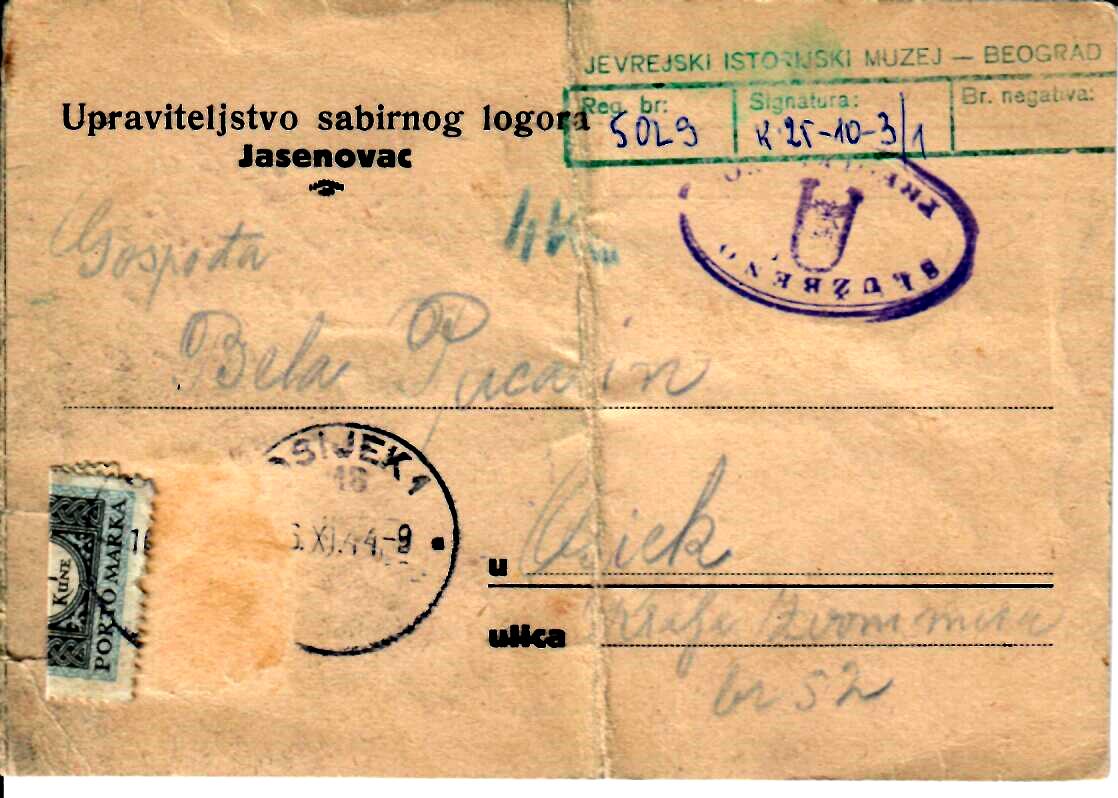 JEVREJSKI ISTORIJSKI MUZEJ — BEOGRAD
Reg. br: Signatura: Br. negativa:
5029 K.25-10-3/1
Upraviteljstvo sabirnog logora
Jasenovac
SLUŽBENO
Gospođa
Bela
OSIJEK 1
18
6.XI.44.-9
PORTO MARKA
KUNE
u Osiek
ulica Kralja Zvonimira
br 52